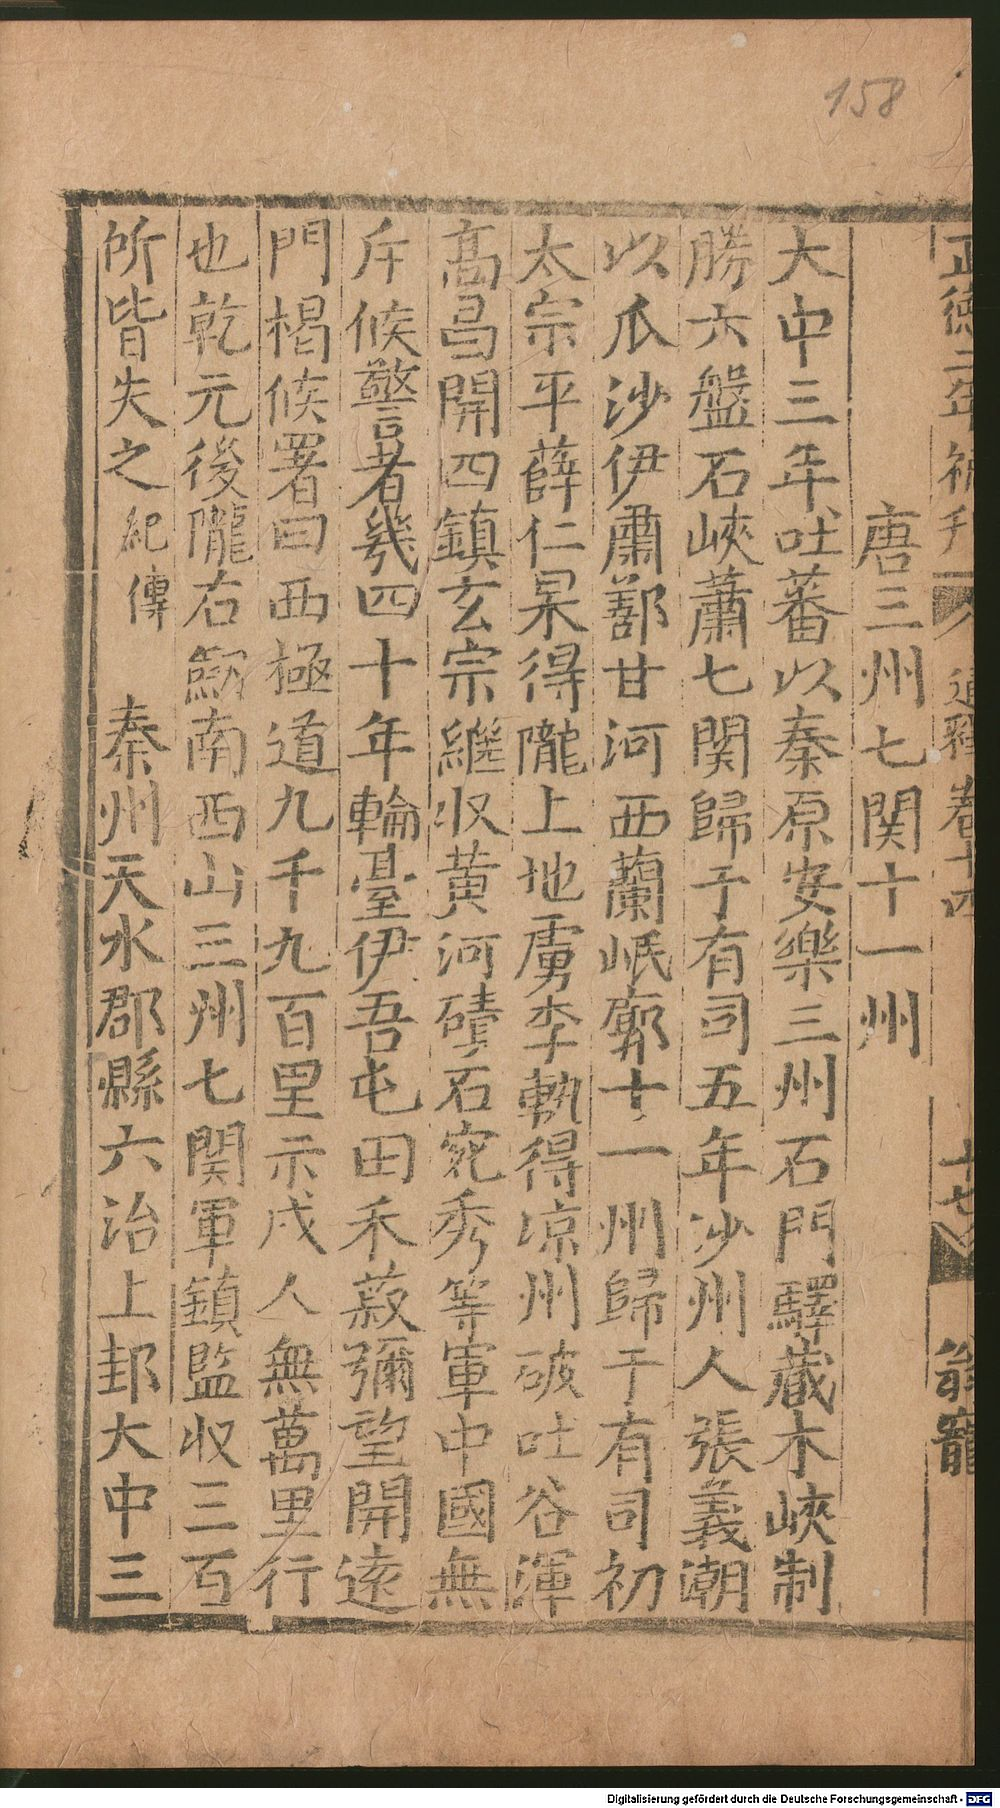 158
正德二年補刊
通釋卷十四
十七
翁寵
唐三州七関十一州
大中三年吐蕃以秦原安樂三州石門驛蔵木峽制
勝六盤石峽蕭七関歸于有司五年沙州人張義潮
以瓜沙伊肅鄯甘河西蘭岷廓十一州歸于有司初
太宗平薛仁杲得隴上地虜李軌得凉州破吐谷渾
髙昌開四鎮玄宗継収黄河磧石宛秀等軍中國無
斥候警者幾四十年輪臺伊吾屯田禾菽彌望開逺
門楬候署曰西極道九千九百里示戍人無萬里行
也乾元後隴右劒南西山三州七関軍鎮監収三百
所皆失之紀傳 秦州天水郡縣六治上邽大中三
Digitalisierung gefördert durch die Deutsche Forschungsgemeinschaft - DFG